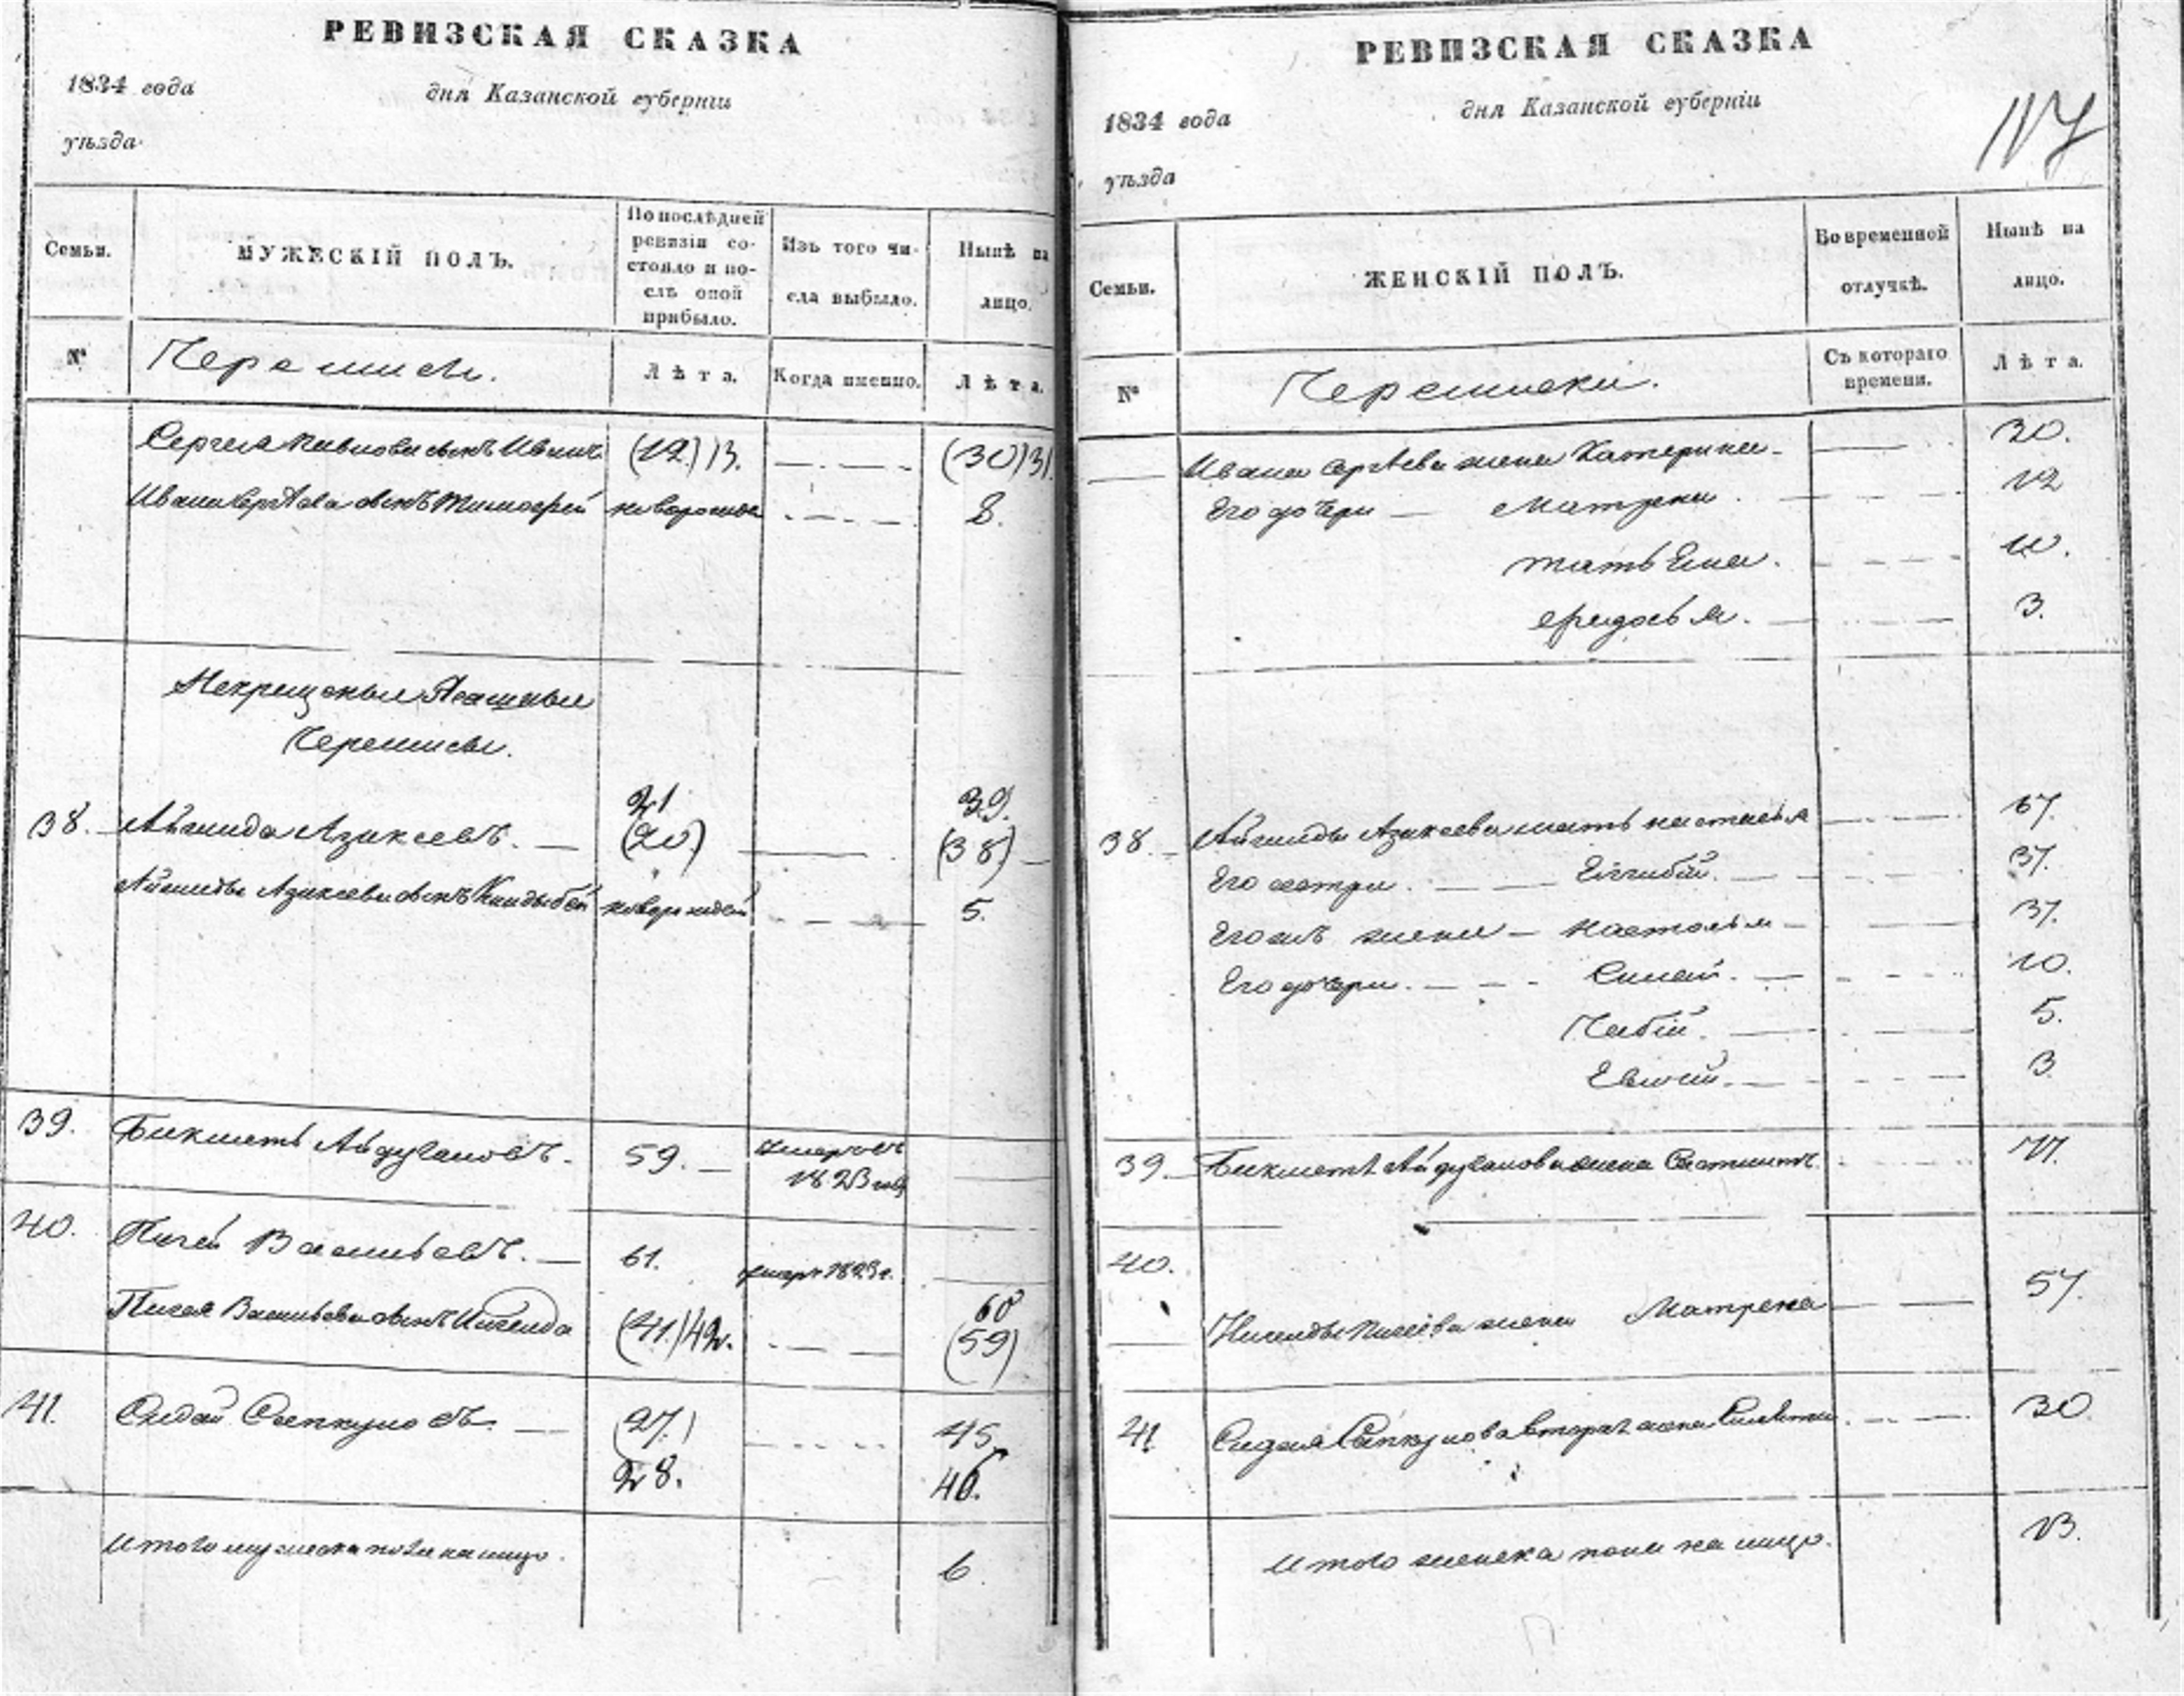 РЕВИЗСКАЯ СКАЗКА
1834 года
дня Казанской губерніи
уѣзда
Семьи.
МУЖЕСКІЙ ПОЛЪ.
По послѣдней ревизіи состояло и послѣ оной прибыло.
Изъ того числа выбыло.
Нынѣ на лицо.
№
Черемисы.
Лѣта.
Когда именно.
Лѣта.
Сергея Павлова сынъ Иванъ (12) 13. (30) 31.
Ивана Сергѣева сынъ Тимофей новорожден 8.
Некрещеные Ясашные
Черемисы.
21 39.
38. Айгилда Азикеевъ. (20) (38)
Айгилды Азикеева сынъ новорожден 5.
39. Бикметь Айдугановъ. 59. умеръ въ
1823 году
40. Пигей Васильевъ. 61. умеръ 1823 г.
60
Пигея Васильева сынъ (41) 42. (59)
41. Сидай Сапкуловъ. (27.) 45
28. 46.
Итого мужеска пола на лицо. 6
РЕВИЗСКАЯ СКАЗКА
1834 года
дня Казанской губерніи
уѣзда
117
Семьи.
ЖЕНСКІЙ ПОЛЪ.
Во временной отлучкѣ.
Нынѣ на лицо.
№
Черемиски.
Съ котораго времени.
Лѣта.
Ивана Сергѣева жена Катерина 30.
Его дочери Матрена 12
Татьяна. 10.
Федосья. 3.
38. Айгилды Азикеева мать Настасья 67.
Его сестра. 37.
Его жъ жена Настасья 37.
Его дочери. Синай. 10.
Чабій. 5.
3
39. Бикметя Айдуганова жена
40.
Матрена 57.
41. Сидая Сапкулова вторая жена 30
Итого женска пола на лицо. 13.